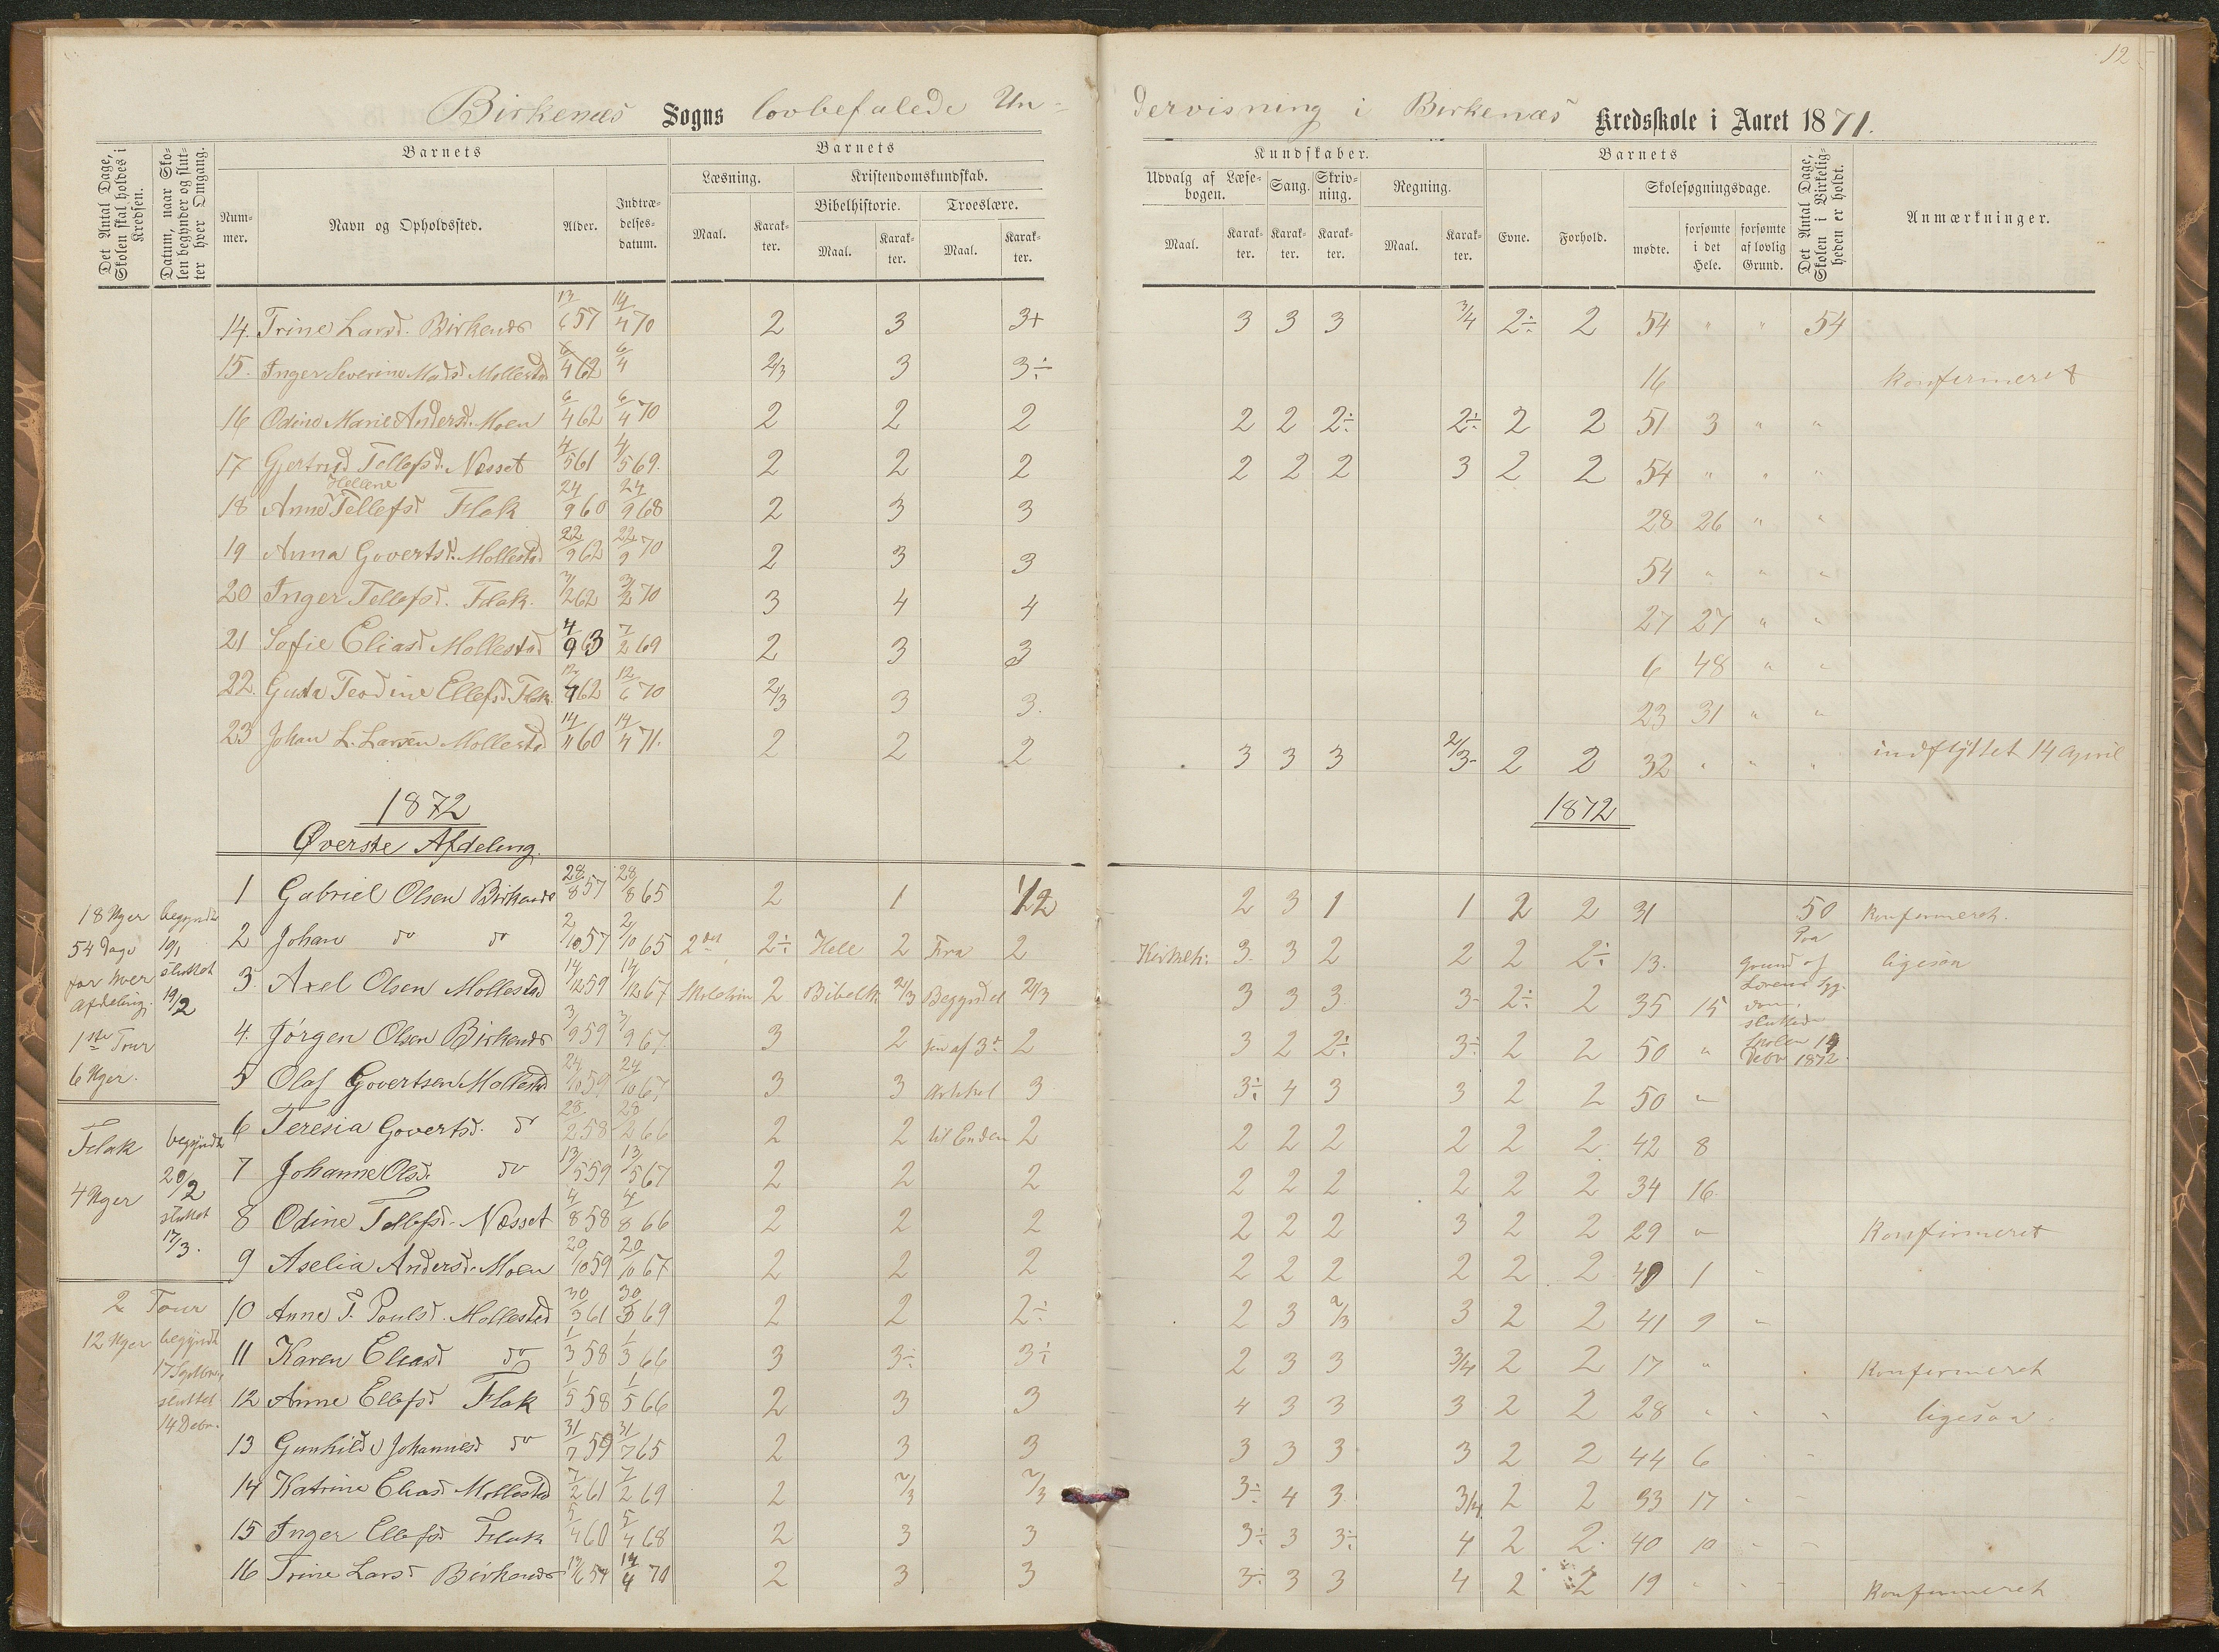 12
Birkenæs Sogns lovbefalede Un-
dervisning i Birkenæs Kredsskole i Aaret 1871.
Det Antal Dage, Skolen skal holdes i Kredsen.
Datum, naar Skolen begynder og slutter hver Omgang.
Barnets
Nummer.
Navn og Opholdssted.
Alder.
Indtrædelsesdatum.
Barnets
Læsning.
Maal.
Karakter.
Kristendomskundskab.
Bibelhistorie.
Maal.
Karakter.
Troeslære.
Maal.
Karakter.
Kundskaber.
Udvalg af Læsebogen.
Maal.
Karakter.
Sang.
Karakter.
Skrivning.
Karakter.
Regning.
Maal.
Karakter.
Barnets
Evne.
Forhold.
Skolesøgningsdage.
mødte.
forsømte i det Hele.
forsømte af lovlig Grund.
Det Antal Dage, Skolen i Virkeligheden er holdt.
Anmærkninger.
14. Trine Larsd. Birkenæs 13/6 57 14/4 70 2 3 3+ 3 3 3 3/4 2÷ 2 54 " " 54
15. Inger Severine Madsd. Mollestad 6/4 62 6/4 2/3 3 3÷ 16 konfermeret
16 Odine Marie Andersd. Moen 6/4 62 6/4 70 2 2 2 2 2 2÷ 2÷ 2 2 51 3 " "
17 Gjertrud Tellefsd. Næsset 4/5 61 4/5 69. 2 2 2 2 2 2 3 2 2 54 " " "
Hellene
18 Anne Tellefsd Flak 24/9 60 24/9 68 2 3 3 28 26 " "
19 Anna Govertsd. Mollestad 22/9 62 22/9 70 2 3 3 54 " " "
20 Inger Tellefsd. Flak. 3/2 62 3/2 70 3 4 4 27 27 " "
21 Sofie Eliasd Mollestad 4/9 63 7/2 69 2 3 3 6 48 " "
22. Gusta Teodine Ellefsd. Flak. 12/4 62 12/6 70 2/3 3 3. 23 31 " "
23 Johan L. Larsen Mollestad 14/11 60 14/4 71. 2 2 2 3 3 3 2/3 2 2 32 " " " indflyttet 14 april
1872
Øverste Afdeling.
1872
1 Gabriel Olsen Birkenæs 28/8 57 28/8 65 2 1 1/2 2 3 1 1 2 2 31 50 konfirmeret.
2 Johan do do 2/10 57 2/10 65 2den 2÷ Hele 2 Fra 2 3. 3 2 2 2 2÷ 13. ligesaa
3. Axel Olsen Mollestad 14/12 59 14/12 67 2 Bibelh. 2/3 Begyndel 2/3 3 3 3 3 2÷ 2 35 15
4. Jørgen Olsen Birkenæs 3/9 59 3/9 67. 3 2 sen af 3d 2 3 2 2÷ 3÷ 2 2 50 "
5 Olaf Govertsen Mollestad 24/10 59 24/10 67 3 3 Artikel 3 3÷ 4 3 3 2 2 50 "
6 Teresia Govertsd. do 28/2 58 28/2 66 2 2 til Enden 2 2 2 2 2 2 2. 42 8
7 Johanne Olsd. do 13/5 59 13/5 67 2 2 2 2 2 2 2 2 2 34 16.
8 Odine Tellefsd. Næsset 4/8 58 4/8 66 2 2 2 2 2 2 3 2 2 29 " Konfirmeret
9 Aselia Andersd. Moen 20/10 59 20/10 67 2 2 2 2 2 2 2 2 2 49 1
10 Anne T. Poulsd. Mollestad 30/3 61 30/3 69 2 2 2÷ 2 3 2/3 3 2 2 41 9
11 Karen Eliasd do 1/3 58 1/3 66 3 3÷ 3÷ 2 3 3 3/4 2 2 17 " Konfirmeret
12 Anne Ellefsd Flak 1/5 58 1/5 66 2 3 3 4 3 3 3 2 2 28 " ligesaa.
13 Gunhild Johannesd do 31/7 59 31/7 65 2 3 3 3 3 3 3 2 2 44 6
14 Katrine Eliasd Mollestad 7/2 61 7/2 69 2 2/3 2/3 3÷ 4 3 3/4 2 2 33 17
15 Inger Ellefsd Flak 5/4 60 5/4 68 2 3 3 3÷ 3 3÷ 4 2 2. 40 10
16 Trine Larsd Birkenæs 13/6 57 14/4 70 2 3 3 3÷ 3 3 4 2 2 19 Konfirmeret
18 Uger
54 Dage
for hver
Afdeling.
1ste Tour
6 Uger.
begyndt
10/1
sluttet
19/2
Flak
4 Uger
begyndt
20/2
sluttet
17/3.
2 Tour
12 Uger begyndt
17 Septbr
sluttet
14 Decbr.
Paa
Grund af
Lærerens Syg-
dom
sluttede
Skolen 14
Debr 1872.